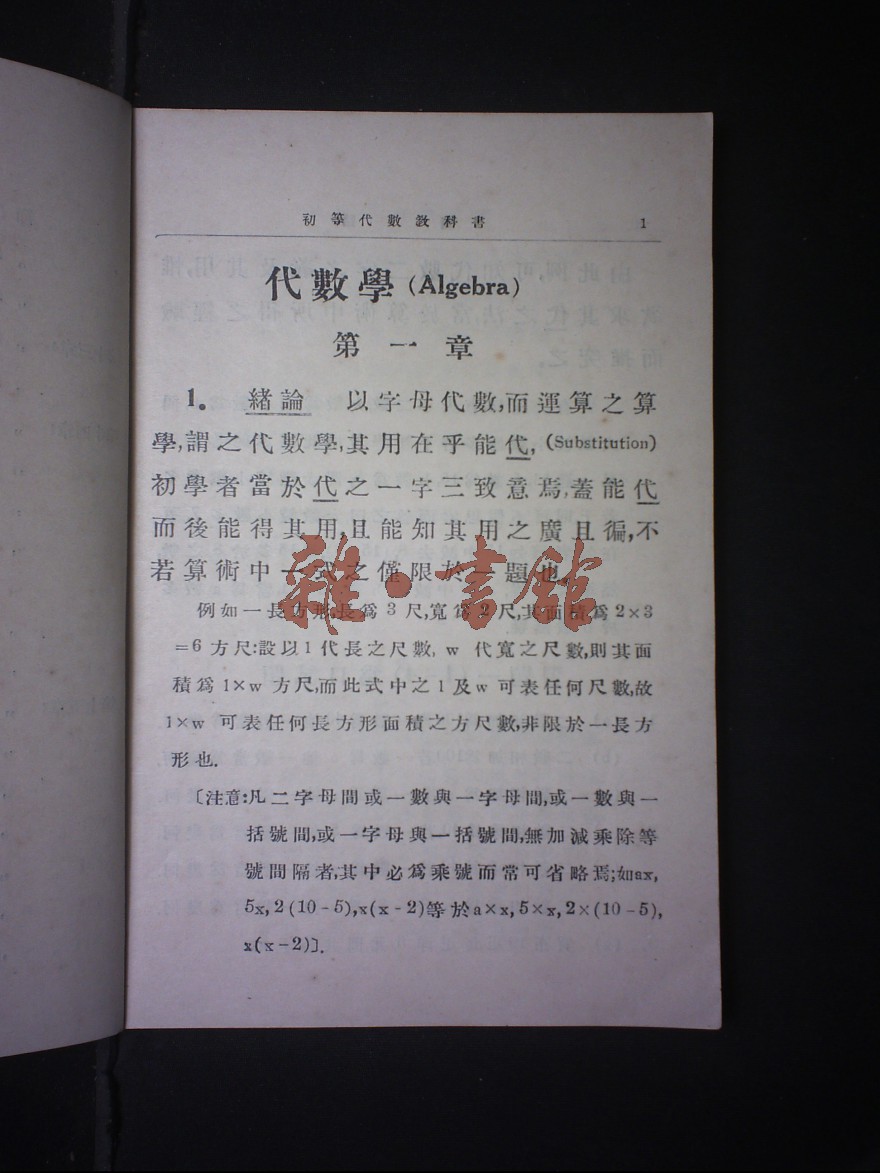 初等代數教科書 1
代數學 (Algebra)
第一章
1。 緒論 以字母代數,而運算之算
學,謂之代數學,其用在乎能代, (Substitution)
初學者當於代之一字三致意焉,蓋能代
而後能得其用,且能知其用之廣且徧,不
若算術中一式之僅限於一題也。
例如一長方形,長爲3尺,寬爲2尺,其面積爲2×3
=6方尺:設以l代長之尺數, w 代寬之尺數,則其面
積爲l×w方尺,而此式中之l及w可表任何尺數,故
l×w 可表任何長方形面積之方尺數,非限於一長方
形也.
〔注意:凡二字母間或一數與一字母間,或一數與一
括號間,或一字母與一括號間,無加減乘除等
號間隔者,其中必爲乘號而常可省略焉;如ax,
5x, 2(10-5),x(x-2)等於a×x, 5×x, 2×(10-5),
x(x-2)〕.
雜·書館